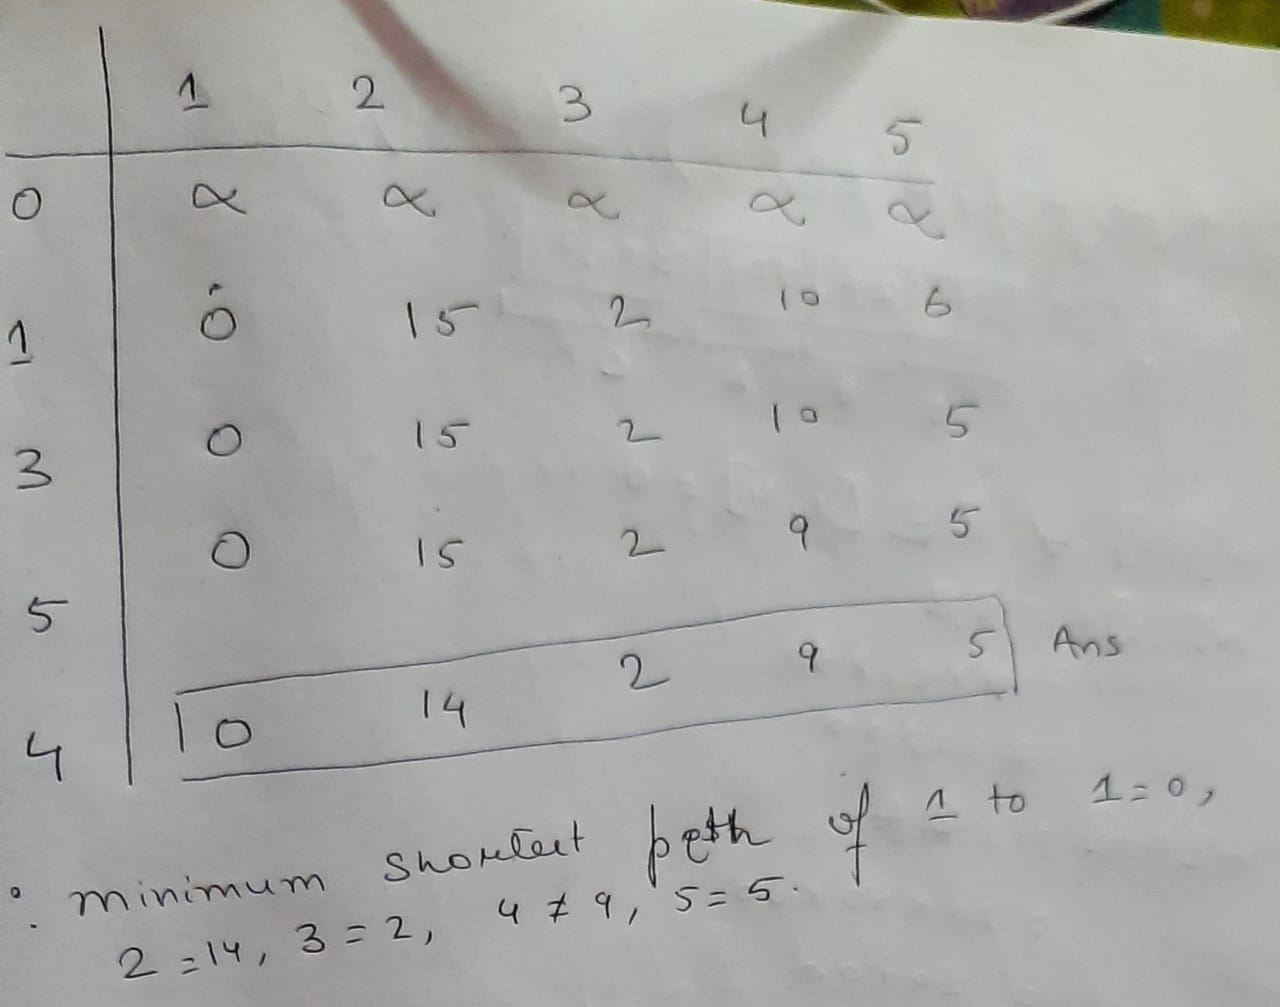 1 2 3 4 5
0 ∝ ∝ ∝ ∝ ∝
1 0 15 2 10 6
3 0 15 2 10 5
5 0 15 2 9 5
4 0 14 2 9 5 Ans
∴ minimum shortest path of 1 to 1=0,
2=14, 3=2, 4≠9, 5=5.